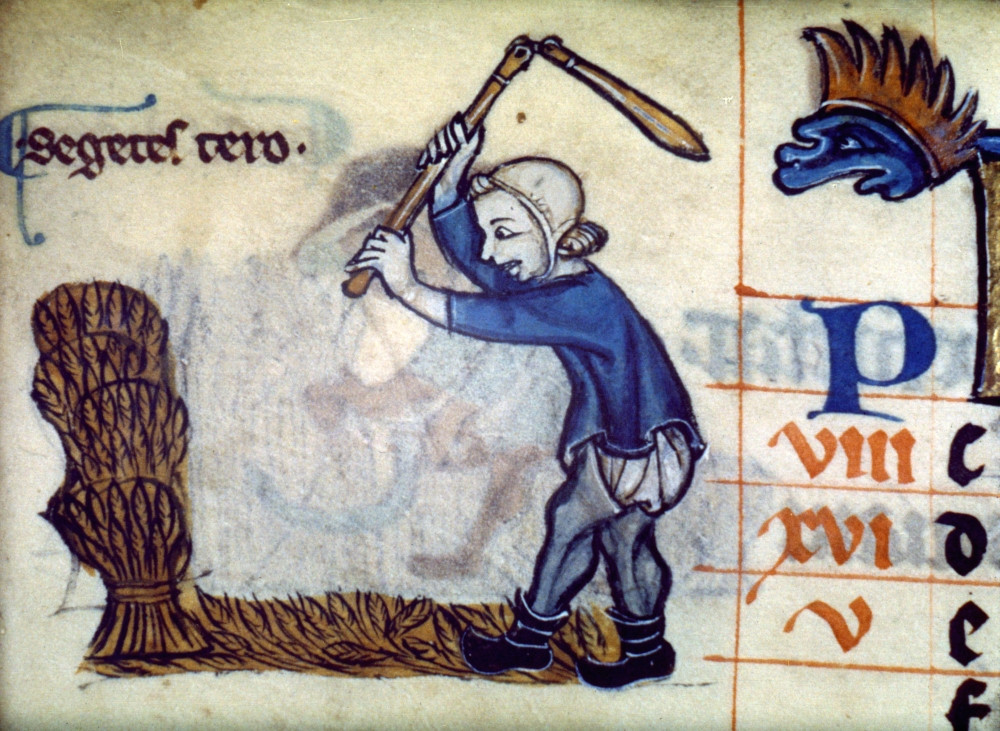 ·Segetes tero·
P
VIII C
XVI D
e
V
f